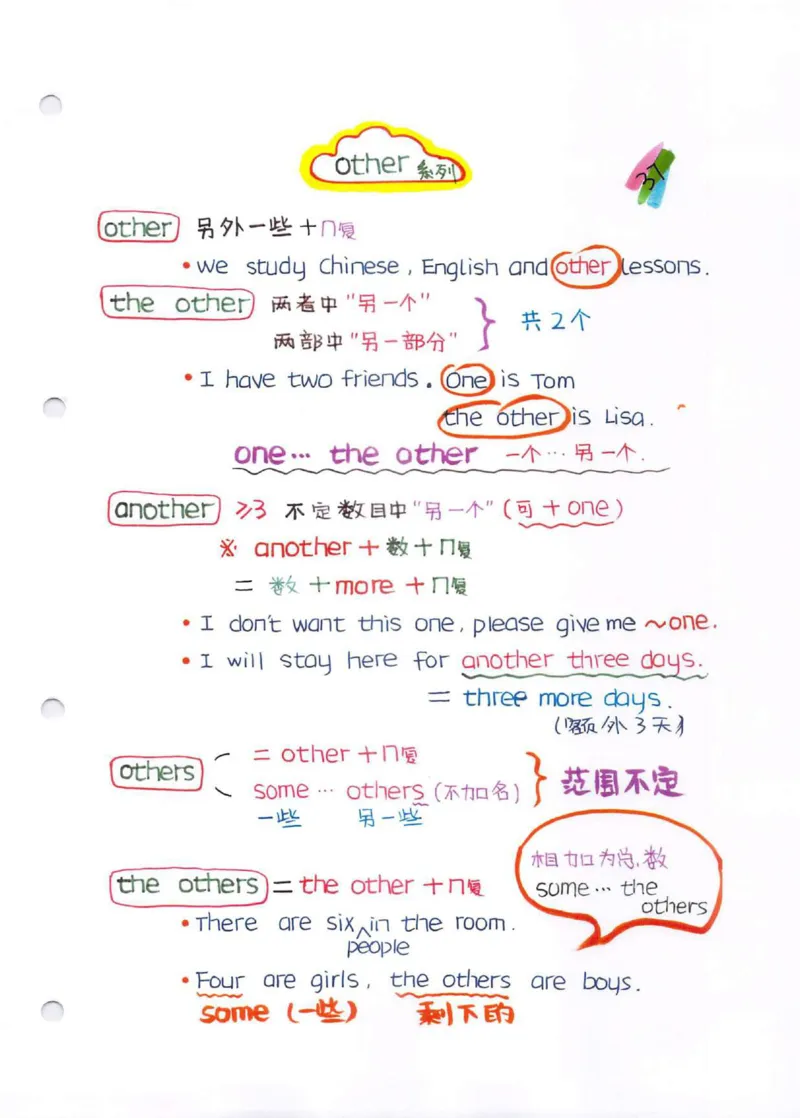 other 系列
37
other 另外一些 + ∩复
• We study Chinese, English and other lessons.
the other 两者中"另一个"
两部中"另一部分"
} 共2个
• I have two friends. One is Tom
the other is Lisa.
one… the other 一个…另一个.
another ≥3 不定数目中"另一个"(可 + one)
※ another + 数 + ∩复
= 数 + more + ∩复
• I don't want this one, please give me ~one.
• I will stay here for another three days.
= three more days.
(额外3天)
others = other + ∩复
some … others (不加名)
一些 另一些
} 范围不定
相加为总数
some… the
others
the others = the other + ∩复
• There are six ^ in the room.
people
• Four are girls, the others are boys.
some (一些) 剩下的